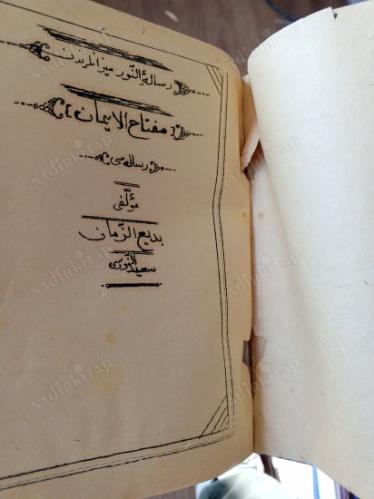 رسالۀ النور میزانلرندن
﴿مفتاح الایمان﴾
رسالەسی
مؤلفی
بدیع الزمان
سعید النورسی
nadirkitap